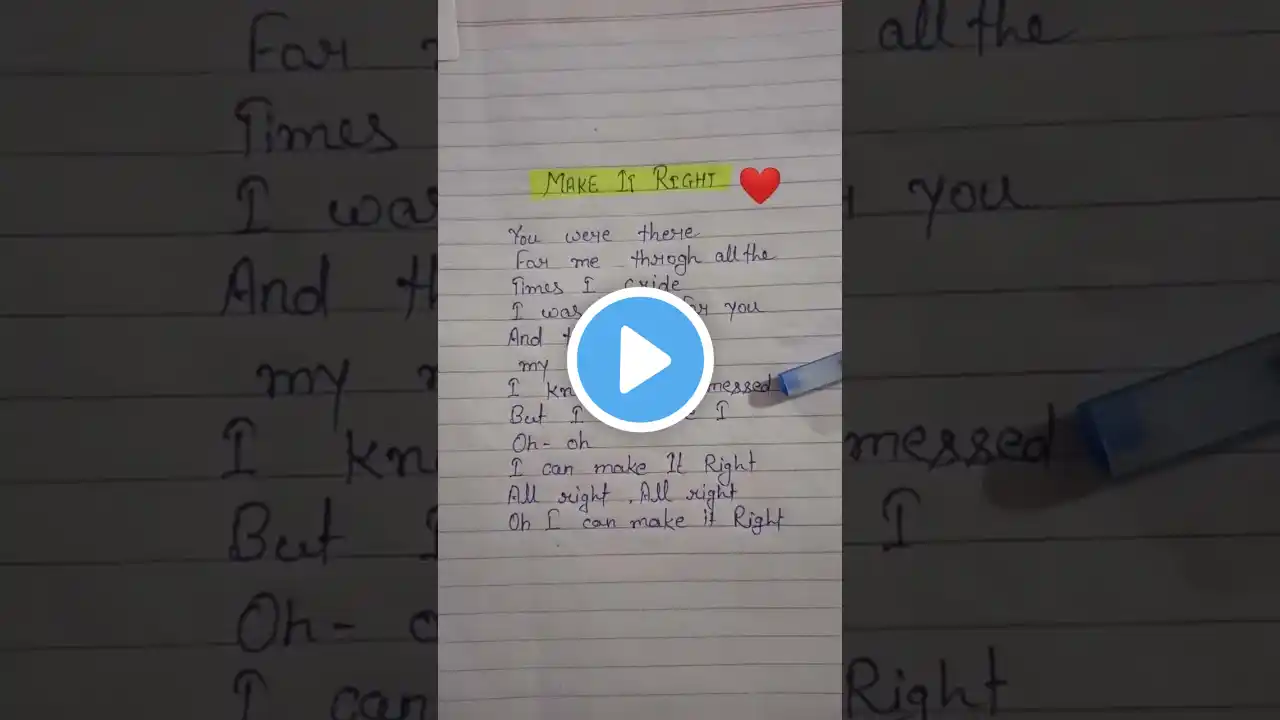 MAKE It RIGHT
You were there
For me throgh all the
Times I
I was you
And
my
I messed
But I I
Oh- oh
I can make It Right
All right , All right
Oh I can make it Right